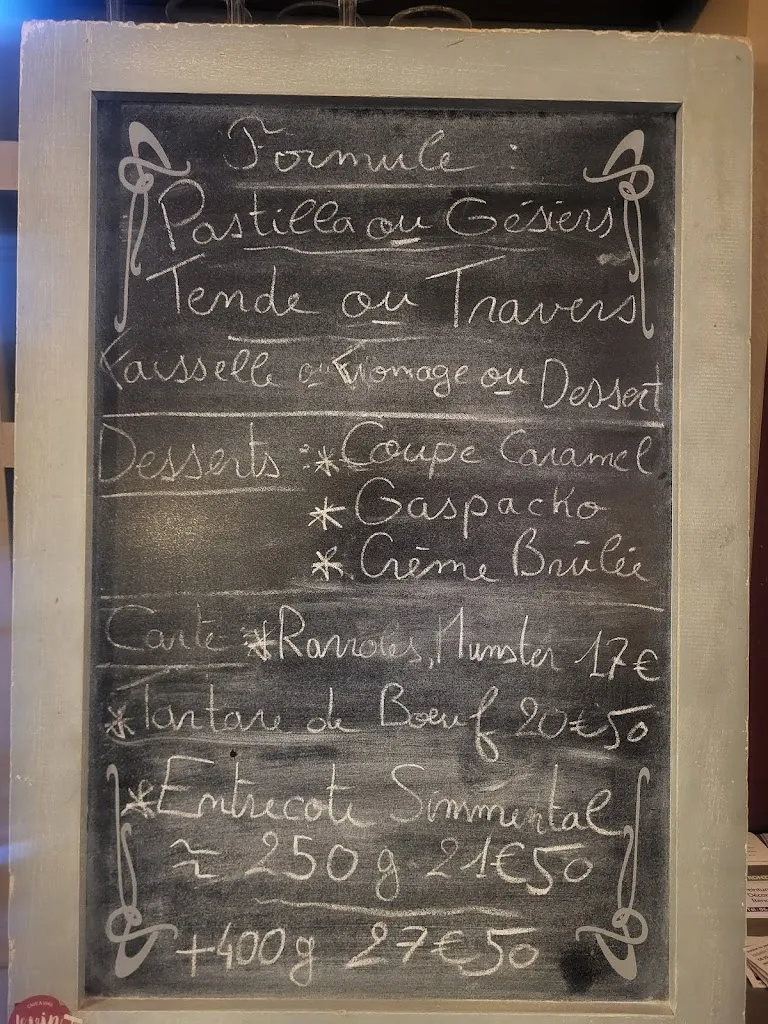 Formule :
Pastilla ou Gésiers
Tende ou Travers
Faisselle ou Fromage ou Dessert
Desserts : * Coupe Caramel
* Gaspacko
* Crème Brûlée
Carte * Ravioles, Munster 17€
* Tartare de Boeuf 20€50
* Entrecote Simmental
≈ 250g 21€50
+400g 27€50